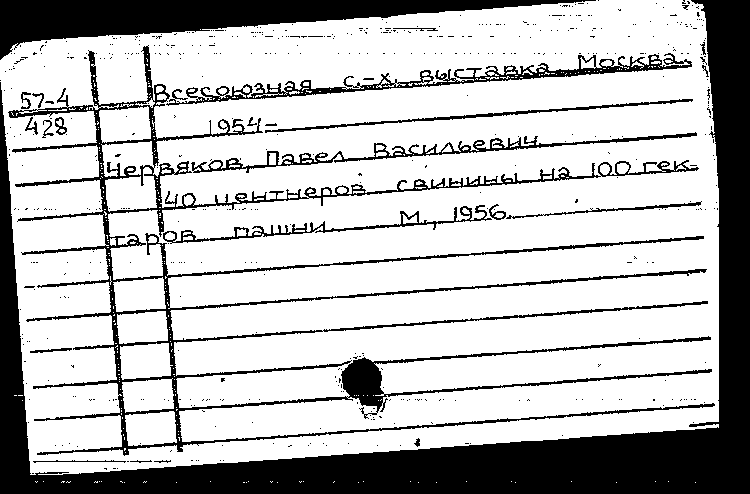 57-4 Всесоюзная с.-х. выставка. Москва.
428 1954-
Червяков, Павел Васильевич.
40 центнеров свинины на 100 гек-
таров пашни. М., 1956.